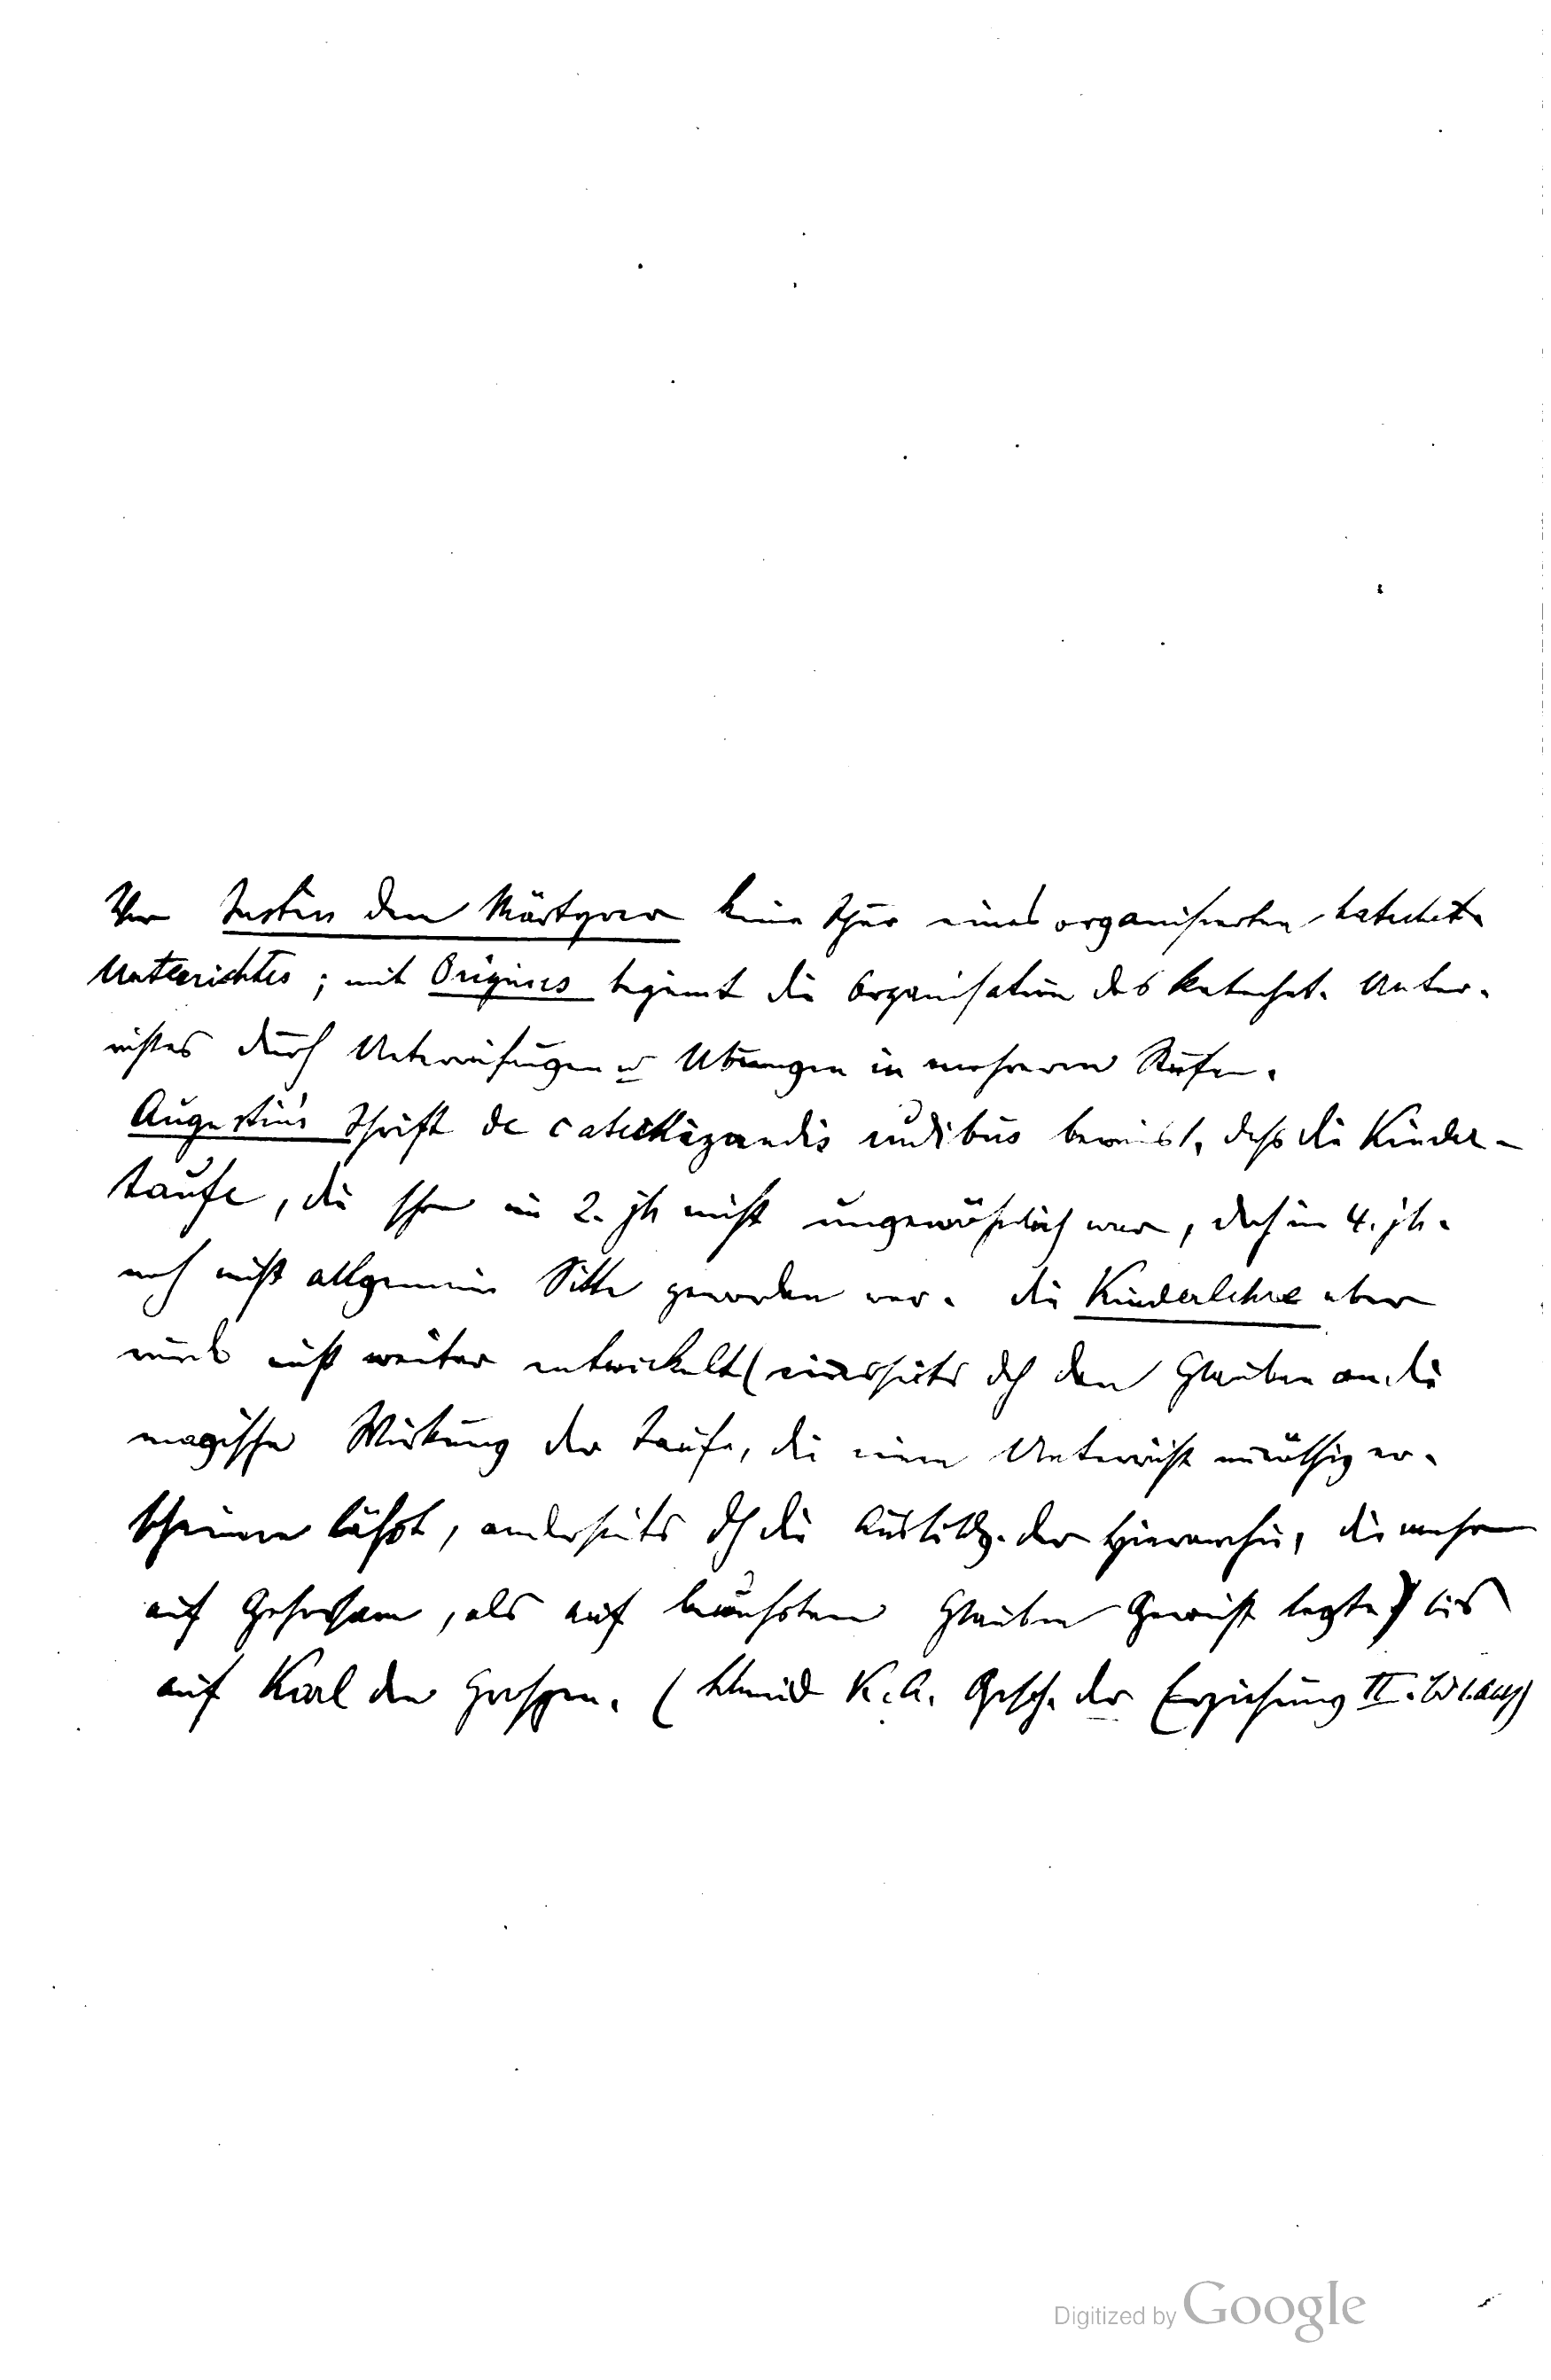 Vor Justin dem Märtyrer keine Spur eines organisierten katechet.
Unterrichtes; mit Origines beginnt die Organisation des katechet. Unter-
richtes durch Unterweisungen u Übungen in mehreren Stufen.
Augustins Schrift de catechizandis rudibus beweist, dass die Kinder-
taufe, die schon im 2. jh nicht ungewöhnlich war, doch im 4. jh.
noch nicht allgemein Sitte geworden war. die Kinderlehre aber
wurde nicht weiter entwickelt (einerseits dch den Glauben an die
magische Wirkung der Taufe, die einen Unterricht unnöthig er-
scheinen lässt, anderseits dch die Ausbildg. der Hierarchie, die mehr
auf Gehorsam, als auf bewussten Glauben Gewicht legte) bis
auf Karl den Grossen. (Schmid K. A. Gesch. der Erziehung II.
Digitized by Google